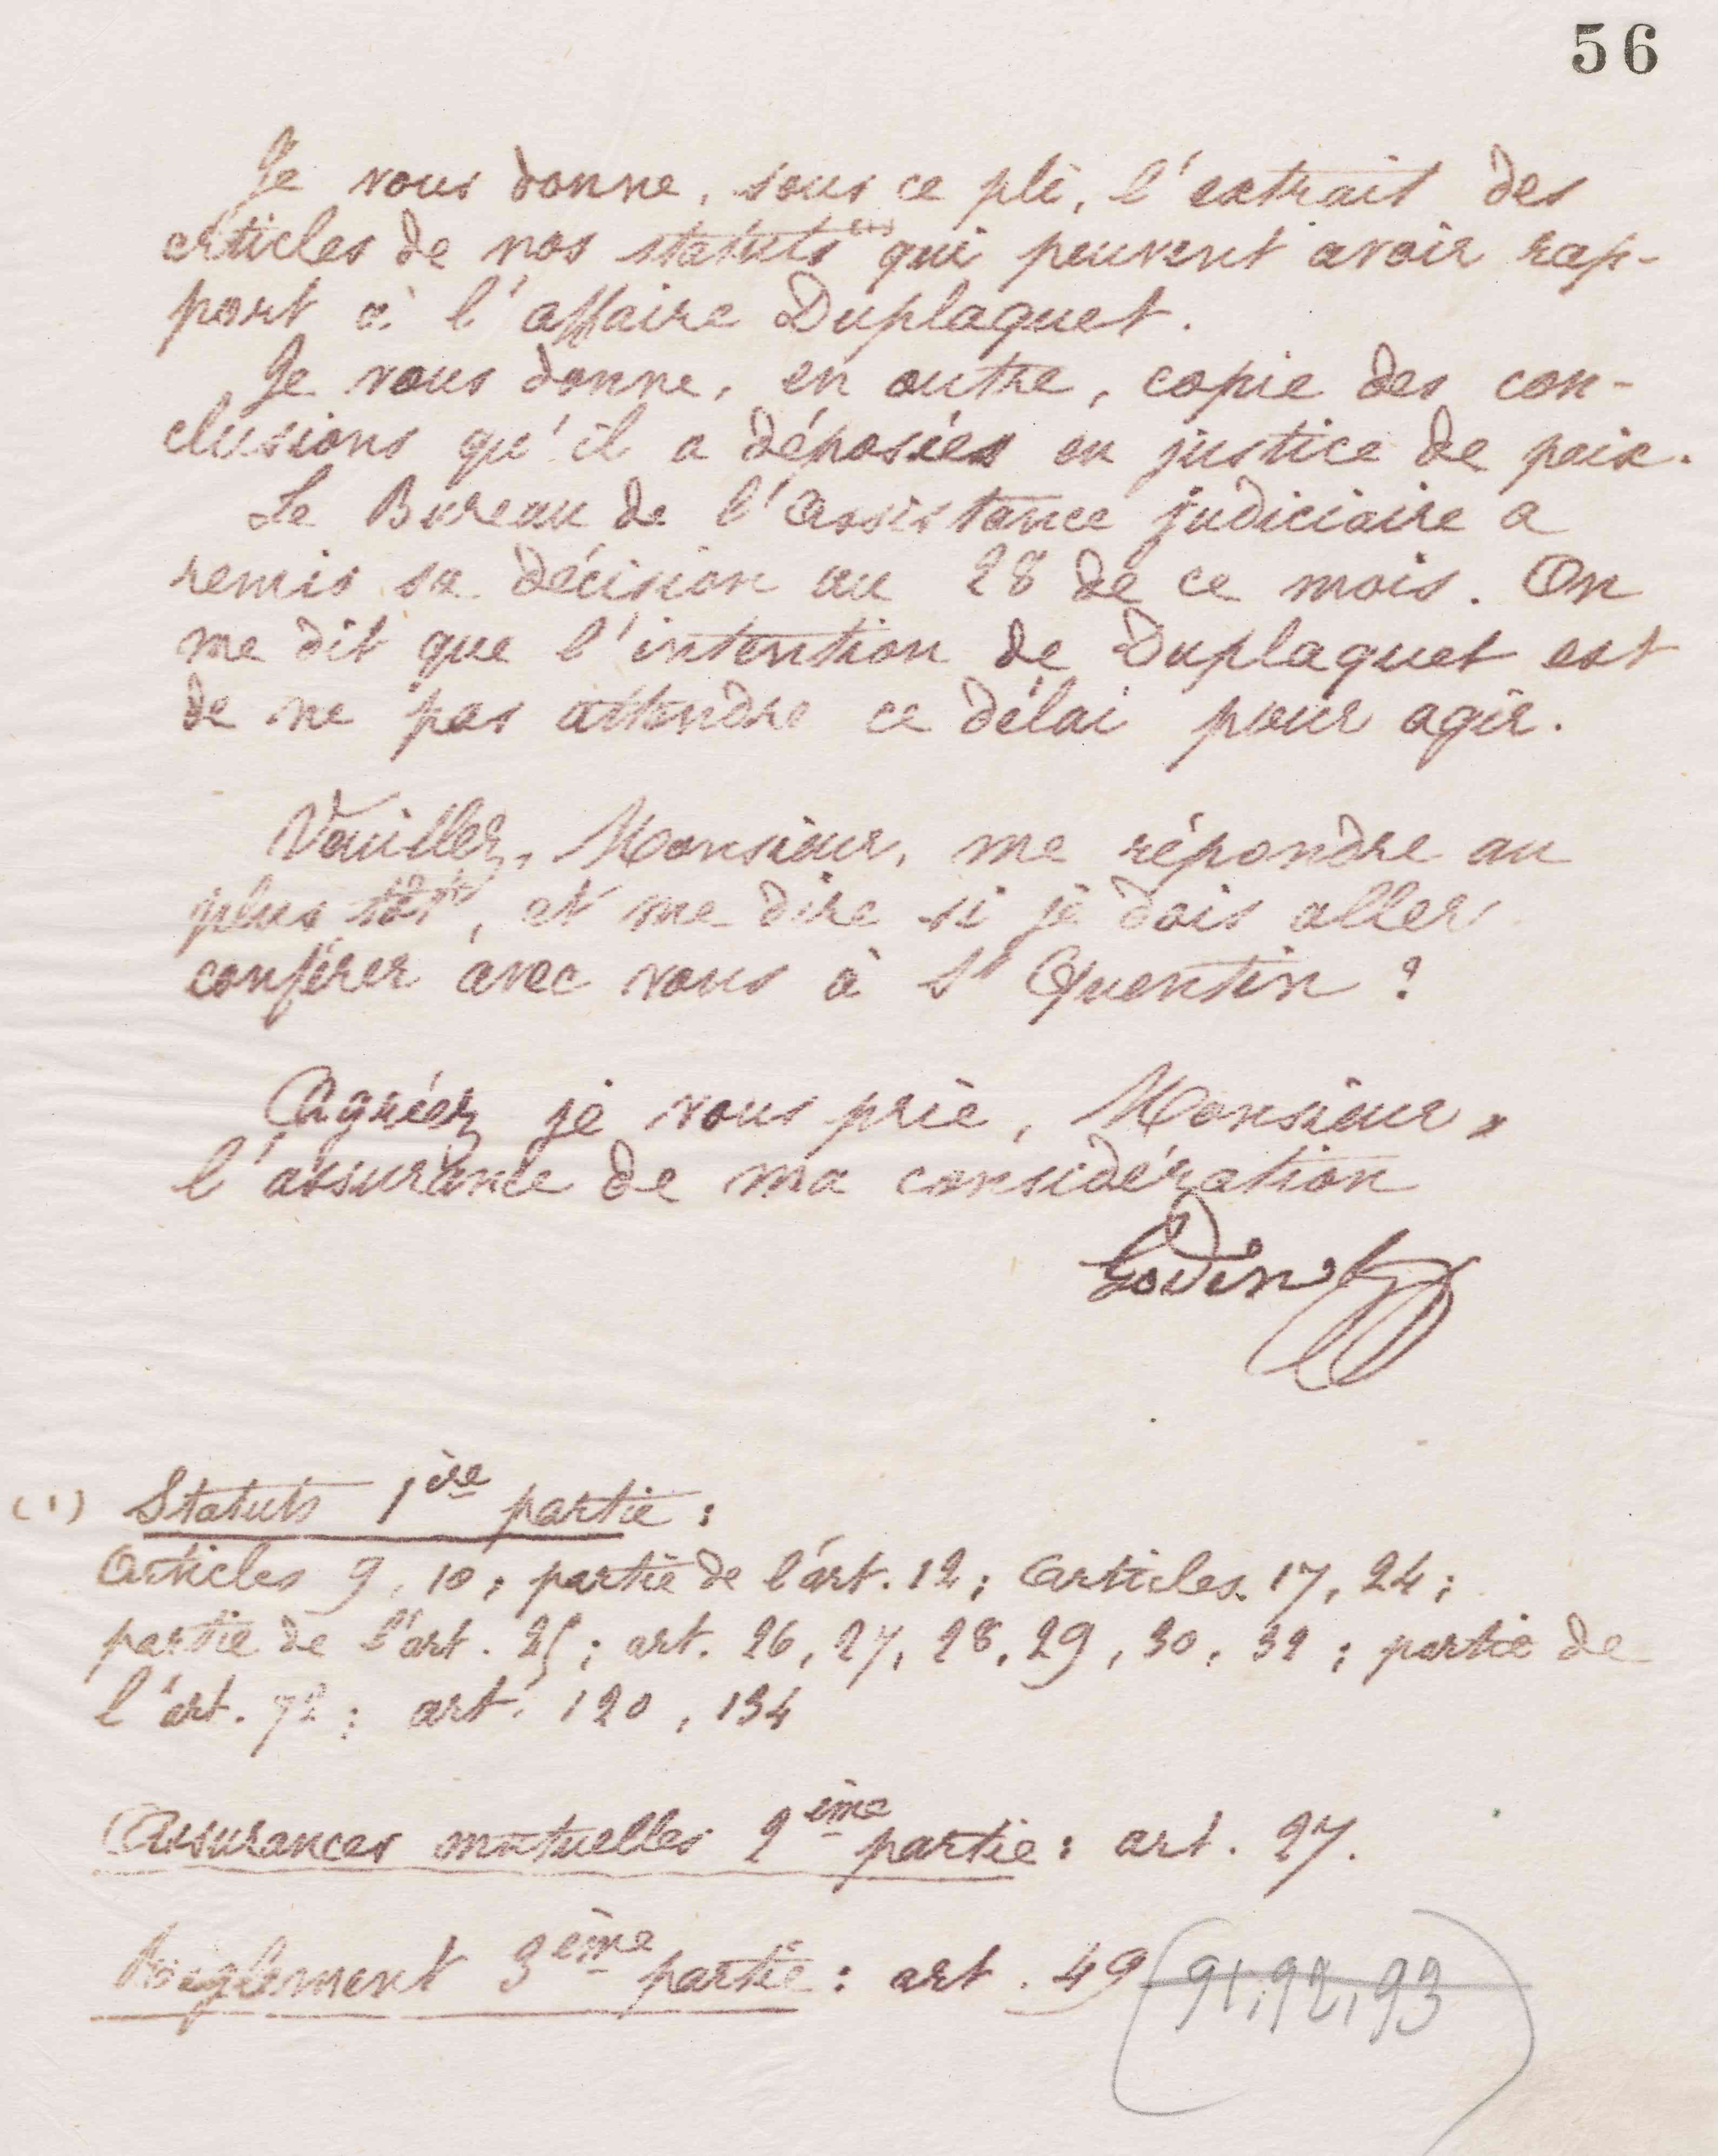 56
Je vous donne, sous ce pli, l'extrait des
articles de nos statuts (1) qui peuvent avoir rap-
port à l'affaire Duplaquet.
Je vous donne, en outre, copie des con-
clusions qu'il a déposées en justice de paix.
Le Bureau de l'assistance judiciaire a
remis sa décision au 28 de ce mois. On
me dit que l'intention de Duplaquet est
de ne pas attendre ce délai pour agir.
Veuillez, Monsieur, me répondre au
plus tôt, et me dire si je dois aller
conférer avec vous à St Quentin ?
Agréez je vous prie, Monsieur,
l'assurance de ma considération
Godin
(1) Statuts 1ère partie :
Articles 9, 10 ; partie de l'art. 12 ; Articles 17, 24 ;
partie de l'art. 25 ; art. 26, 27, 28, 29, 30, 32 ; partie de
l'art. 72 ; art. 120, 134
Assurances mutuelles 2ème partie : art. 27.
Règlement 3ème partie : art. 49 (91, 92, 93)